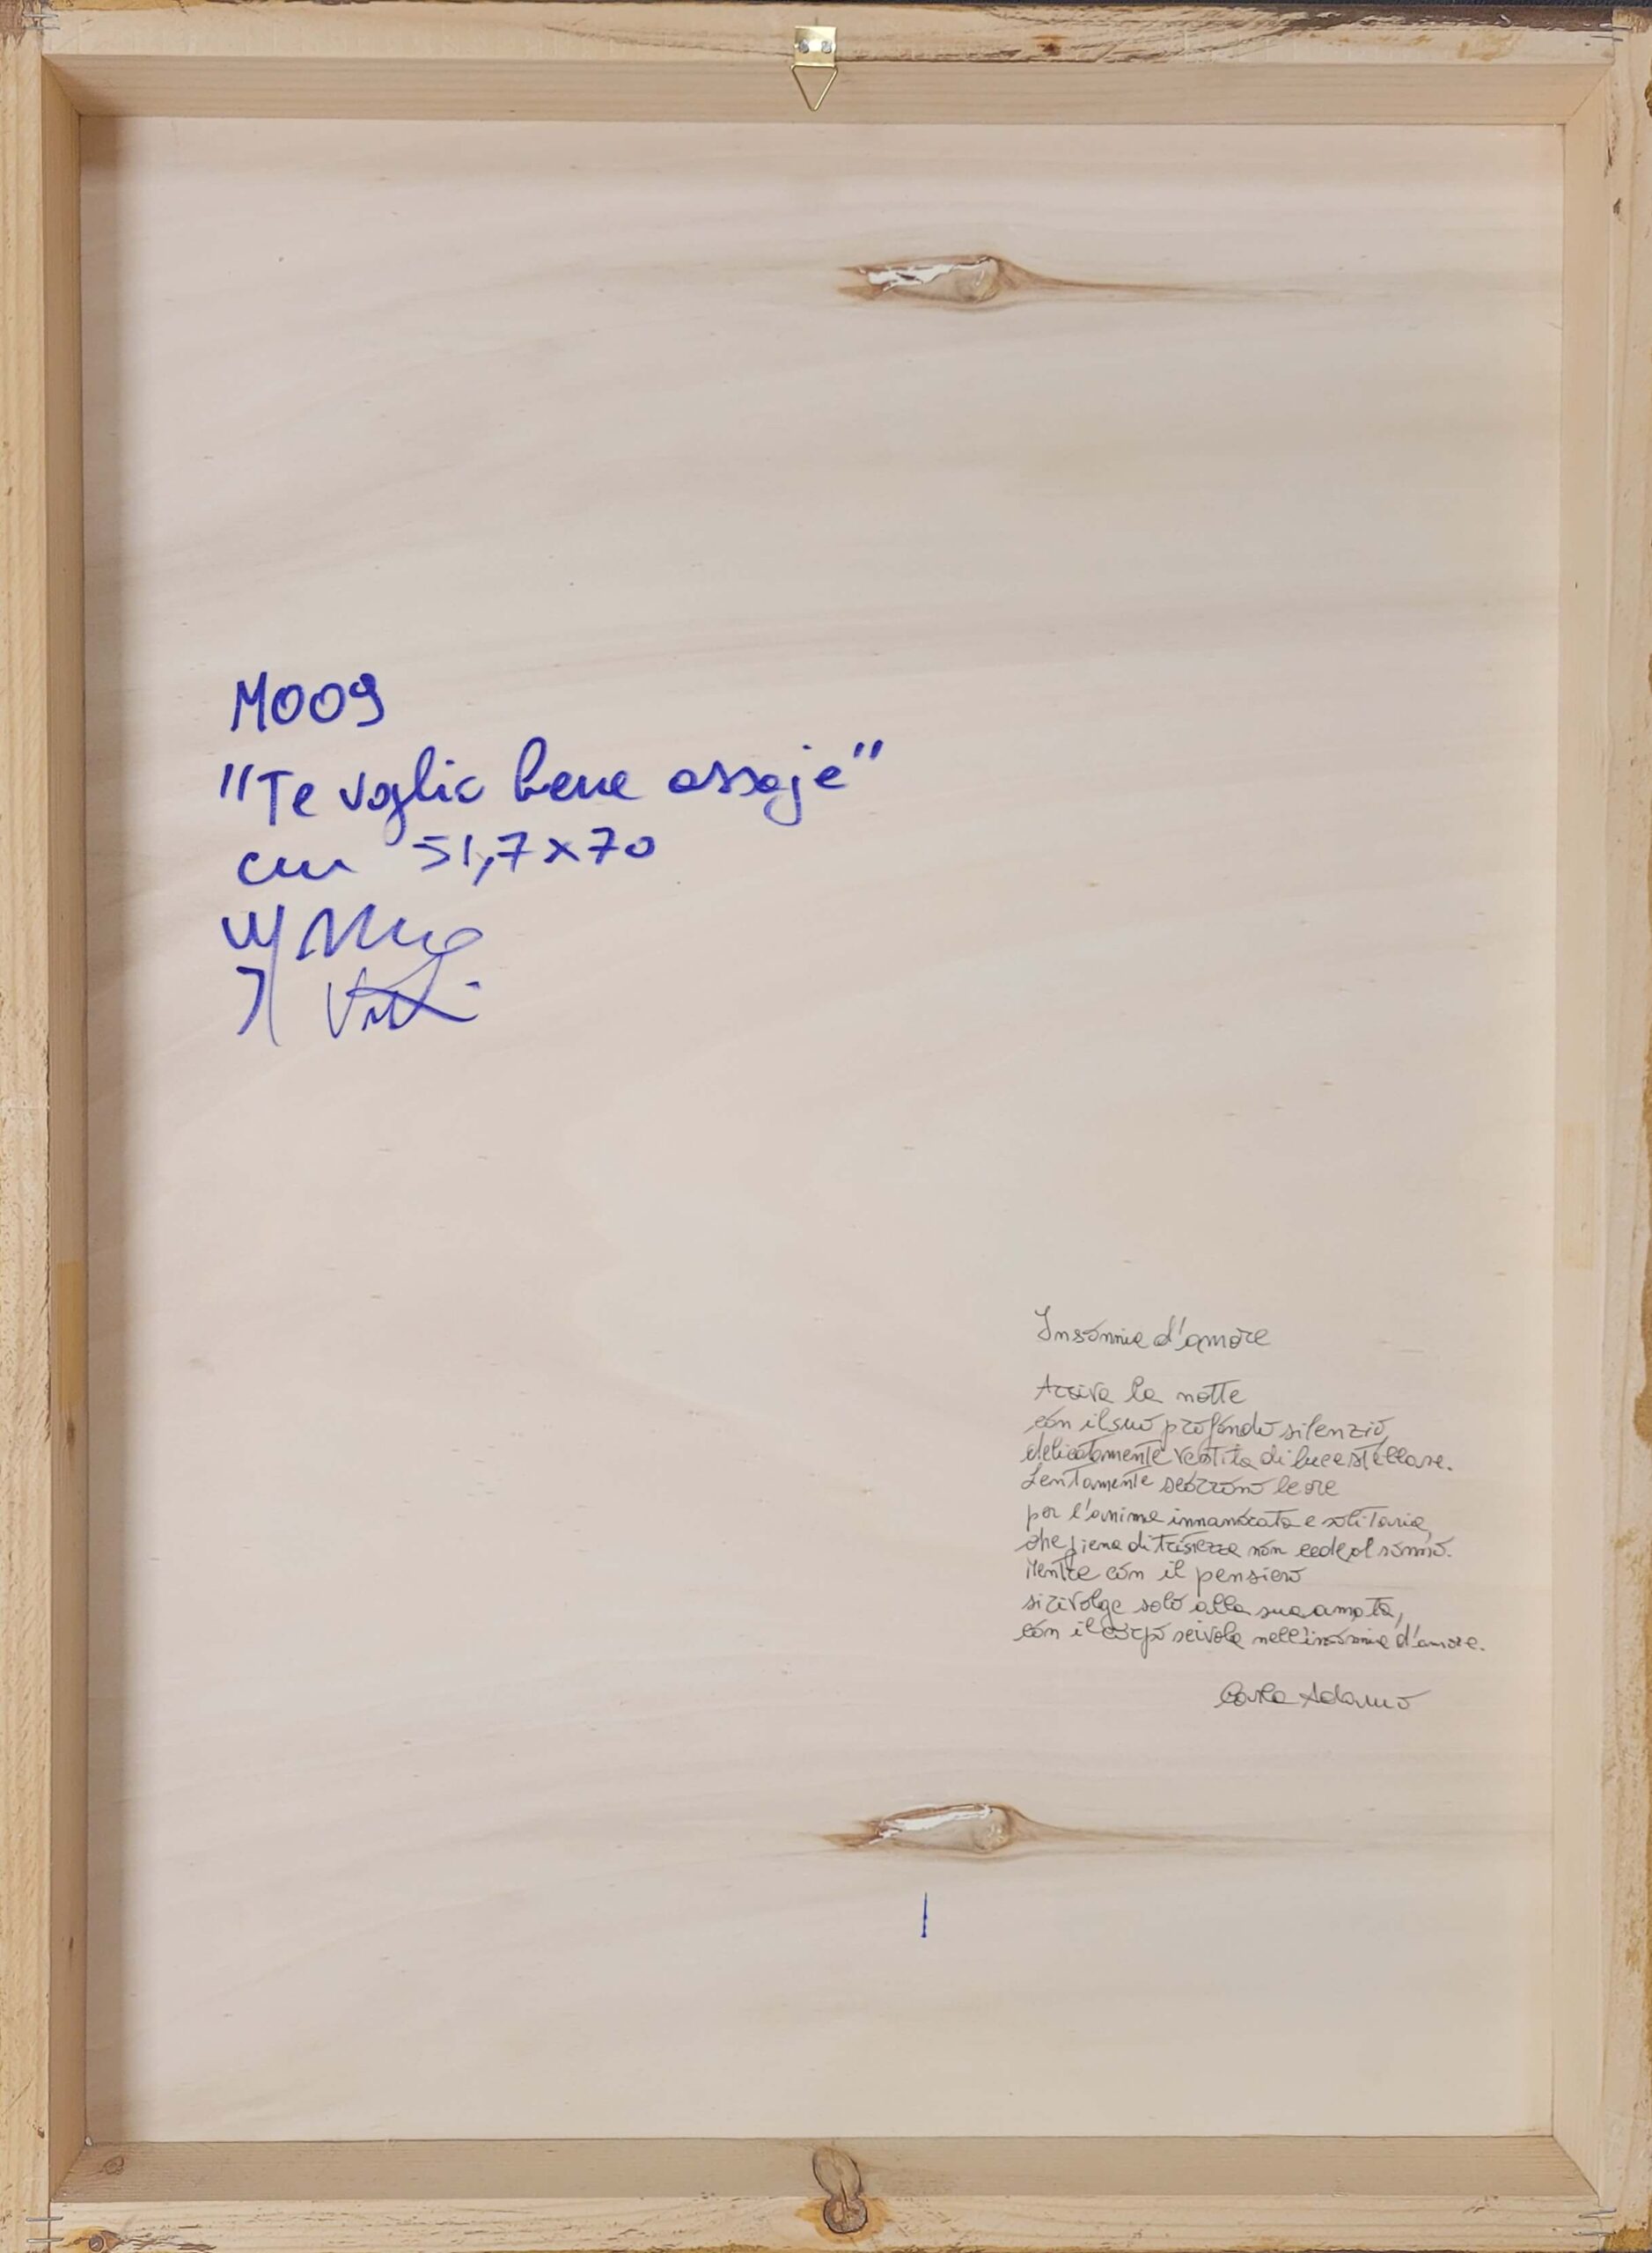 M009
"Te voglio bene assaje"
cm 51,7x70
Insonnia d'amore
Arriva la notte
con il suo profondo silenzio,
delicatamente vestita di luce stellare.
Lentamente scorrono le ore
per l'anima innamorata e solitaria,
che piena di tristezza non cede al sonno.
Mentre con il pensiero
si rivolge solo alla sua amata,
con il corpo scivola nell'insonnia d'amore.
Carla Adamo